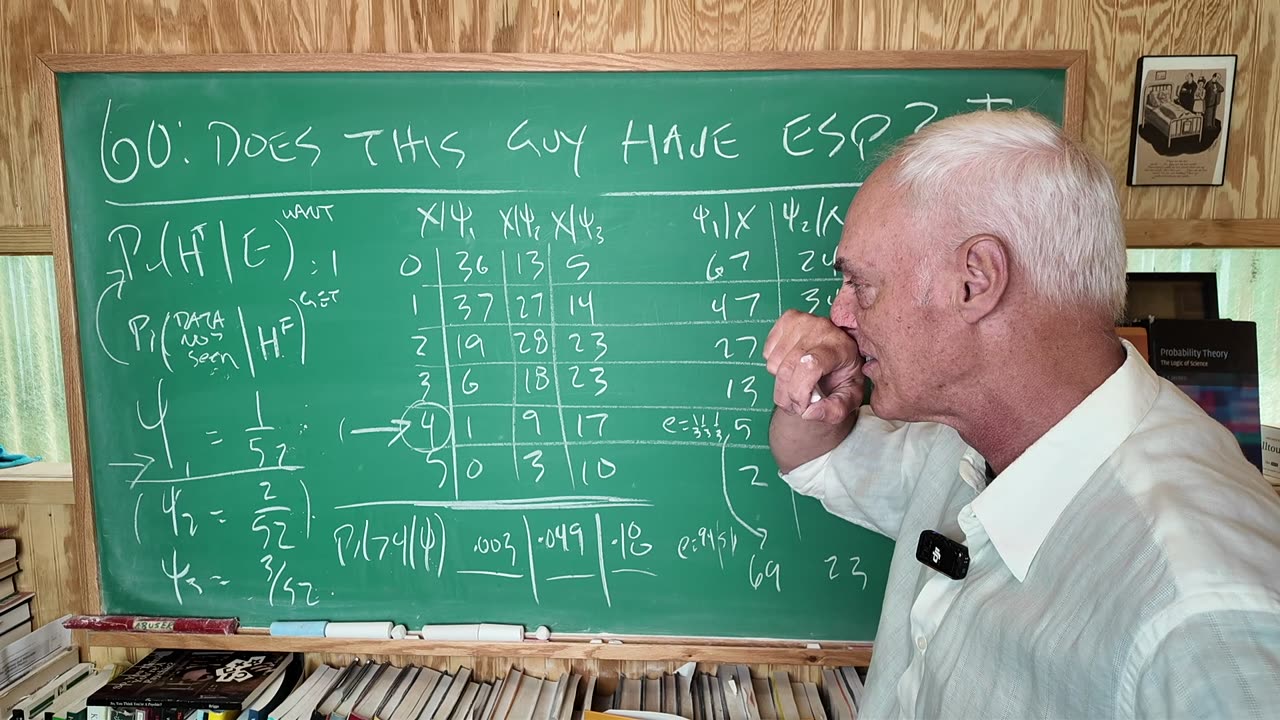 60: DOES THIS GUY HAVE ESP?
Pr(Hᵀ|E) WANT = 1
Pr(DATA NOT SEEN|Hᶠ) GET
Ψ₁ = 1/52
(Ψ₂ = 2/52)
Ψ₃ = 3/52
X|Ψ₁ X|Ψ₂ X|Ψ₃
0 36 13 5
1 37 27 14
2 19 28 23
3 6 18 23
4 1 9 17
5 0 3 10
Pr(>4|Ψ) .003 .049 .18
Ψ₁|X Ψ₂|X
67
47
27
13
e=1/3,1/3,1/3, 5
2
69 23
ABUSER
Probability Theory
The Logic of Science
Briggs